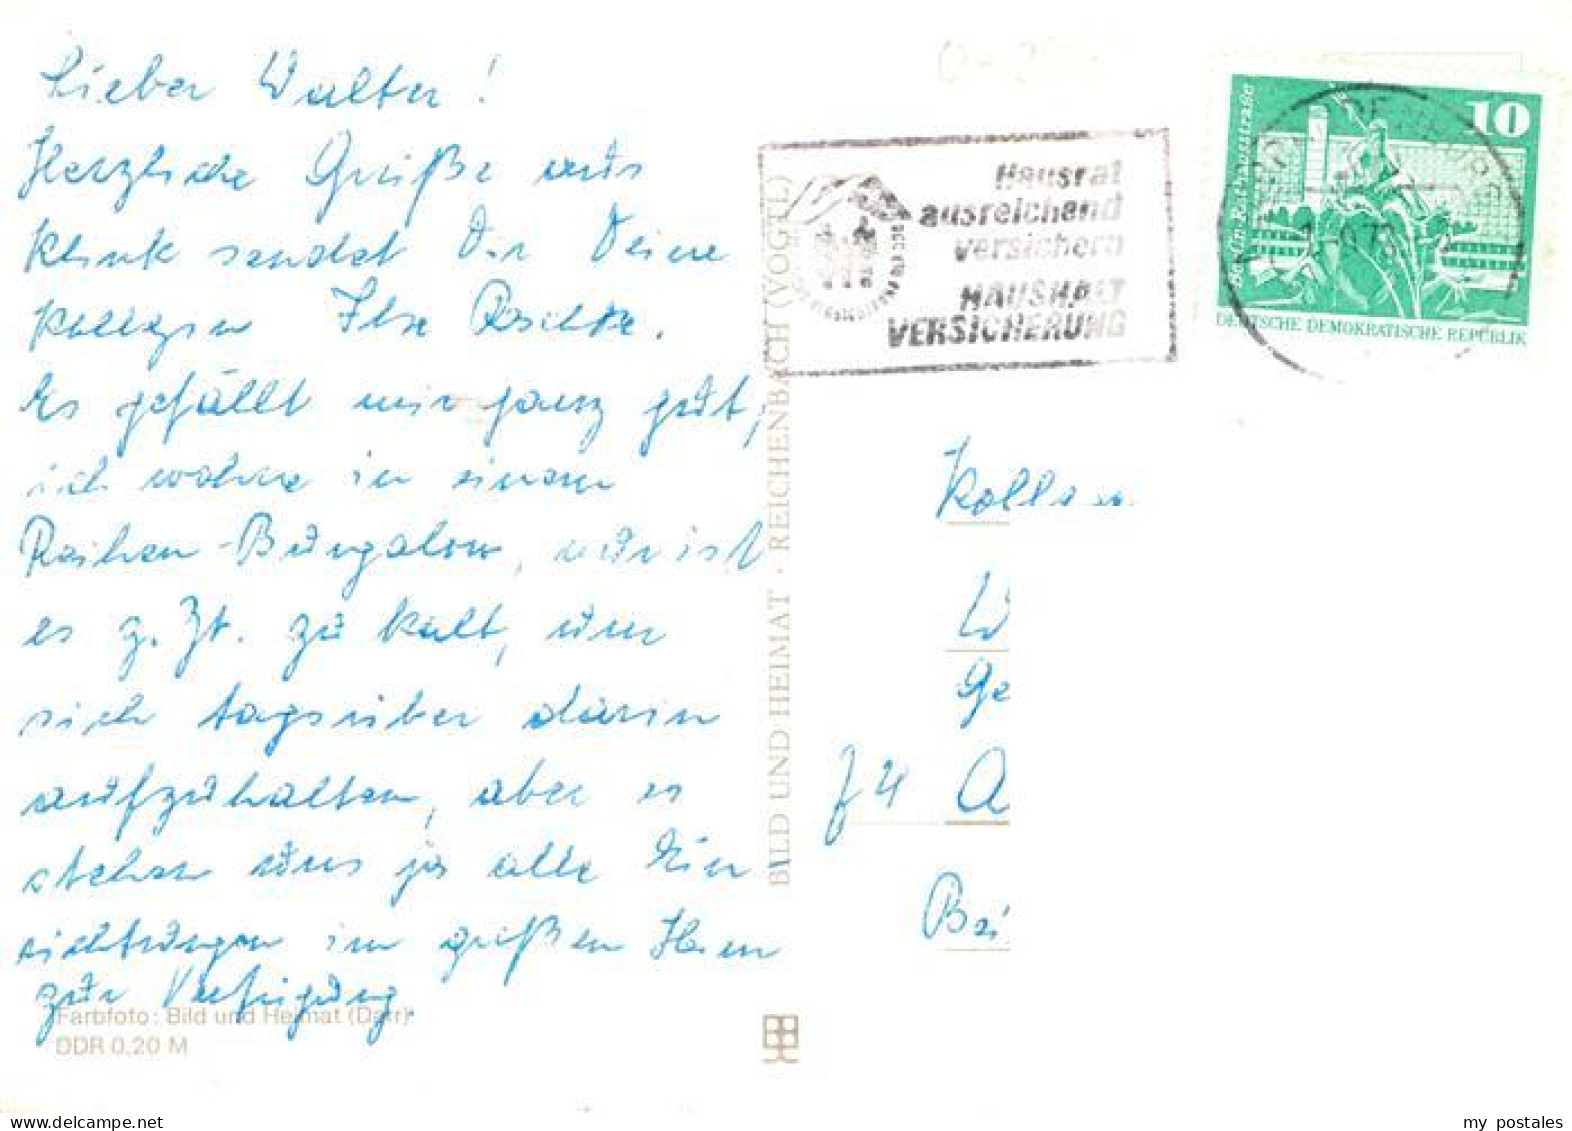 Lieber Walter!
Herzliche Grüße aus
Klink sendet Dir Deine
Kollegin Ilse
Es gefällt mir ganz gut,
ich wohne in einem
Reihen-Bungalow, nur ist
es z. Zt. zu kalt, um
sich tagsüber darin
aufzuhalten, aber es
stehen uns ja alle Ein
richtungen im großen Heim
zur Verfügung.
Farbfoto: Bild und Heimat (Darr)
DDR 0,20 M
BILD UND HEIMAT · REICHENBACH (VOGTL)
Hausrat
ausreichend
versichern
HAUSHALT
VERSICHERUNG
10
Berlin, Rathausstraße
DEUTSCHE DEMOKRATISCHE REPUBLIK
W
Ge
A
my postales